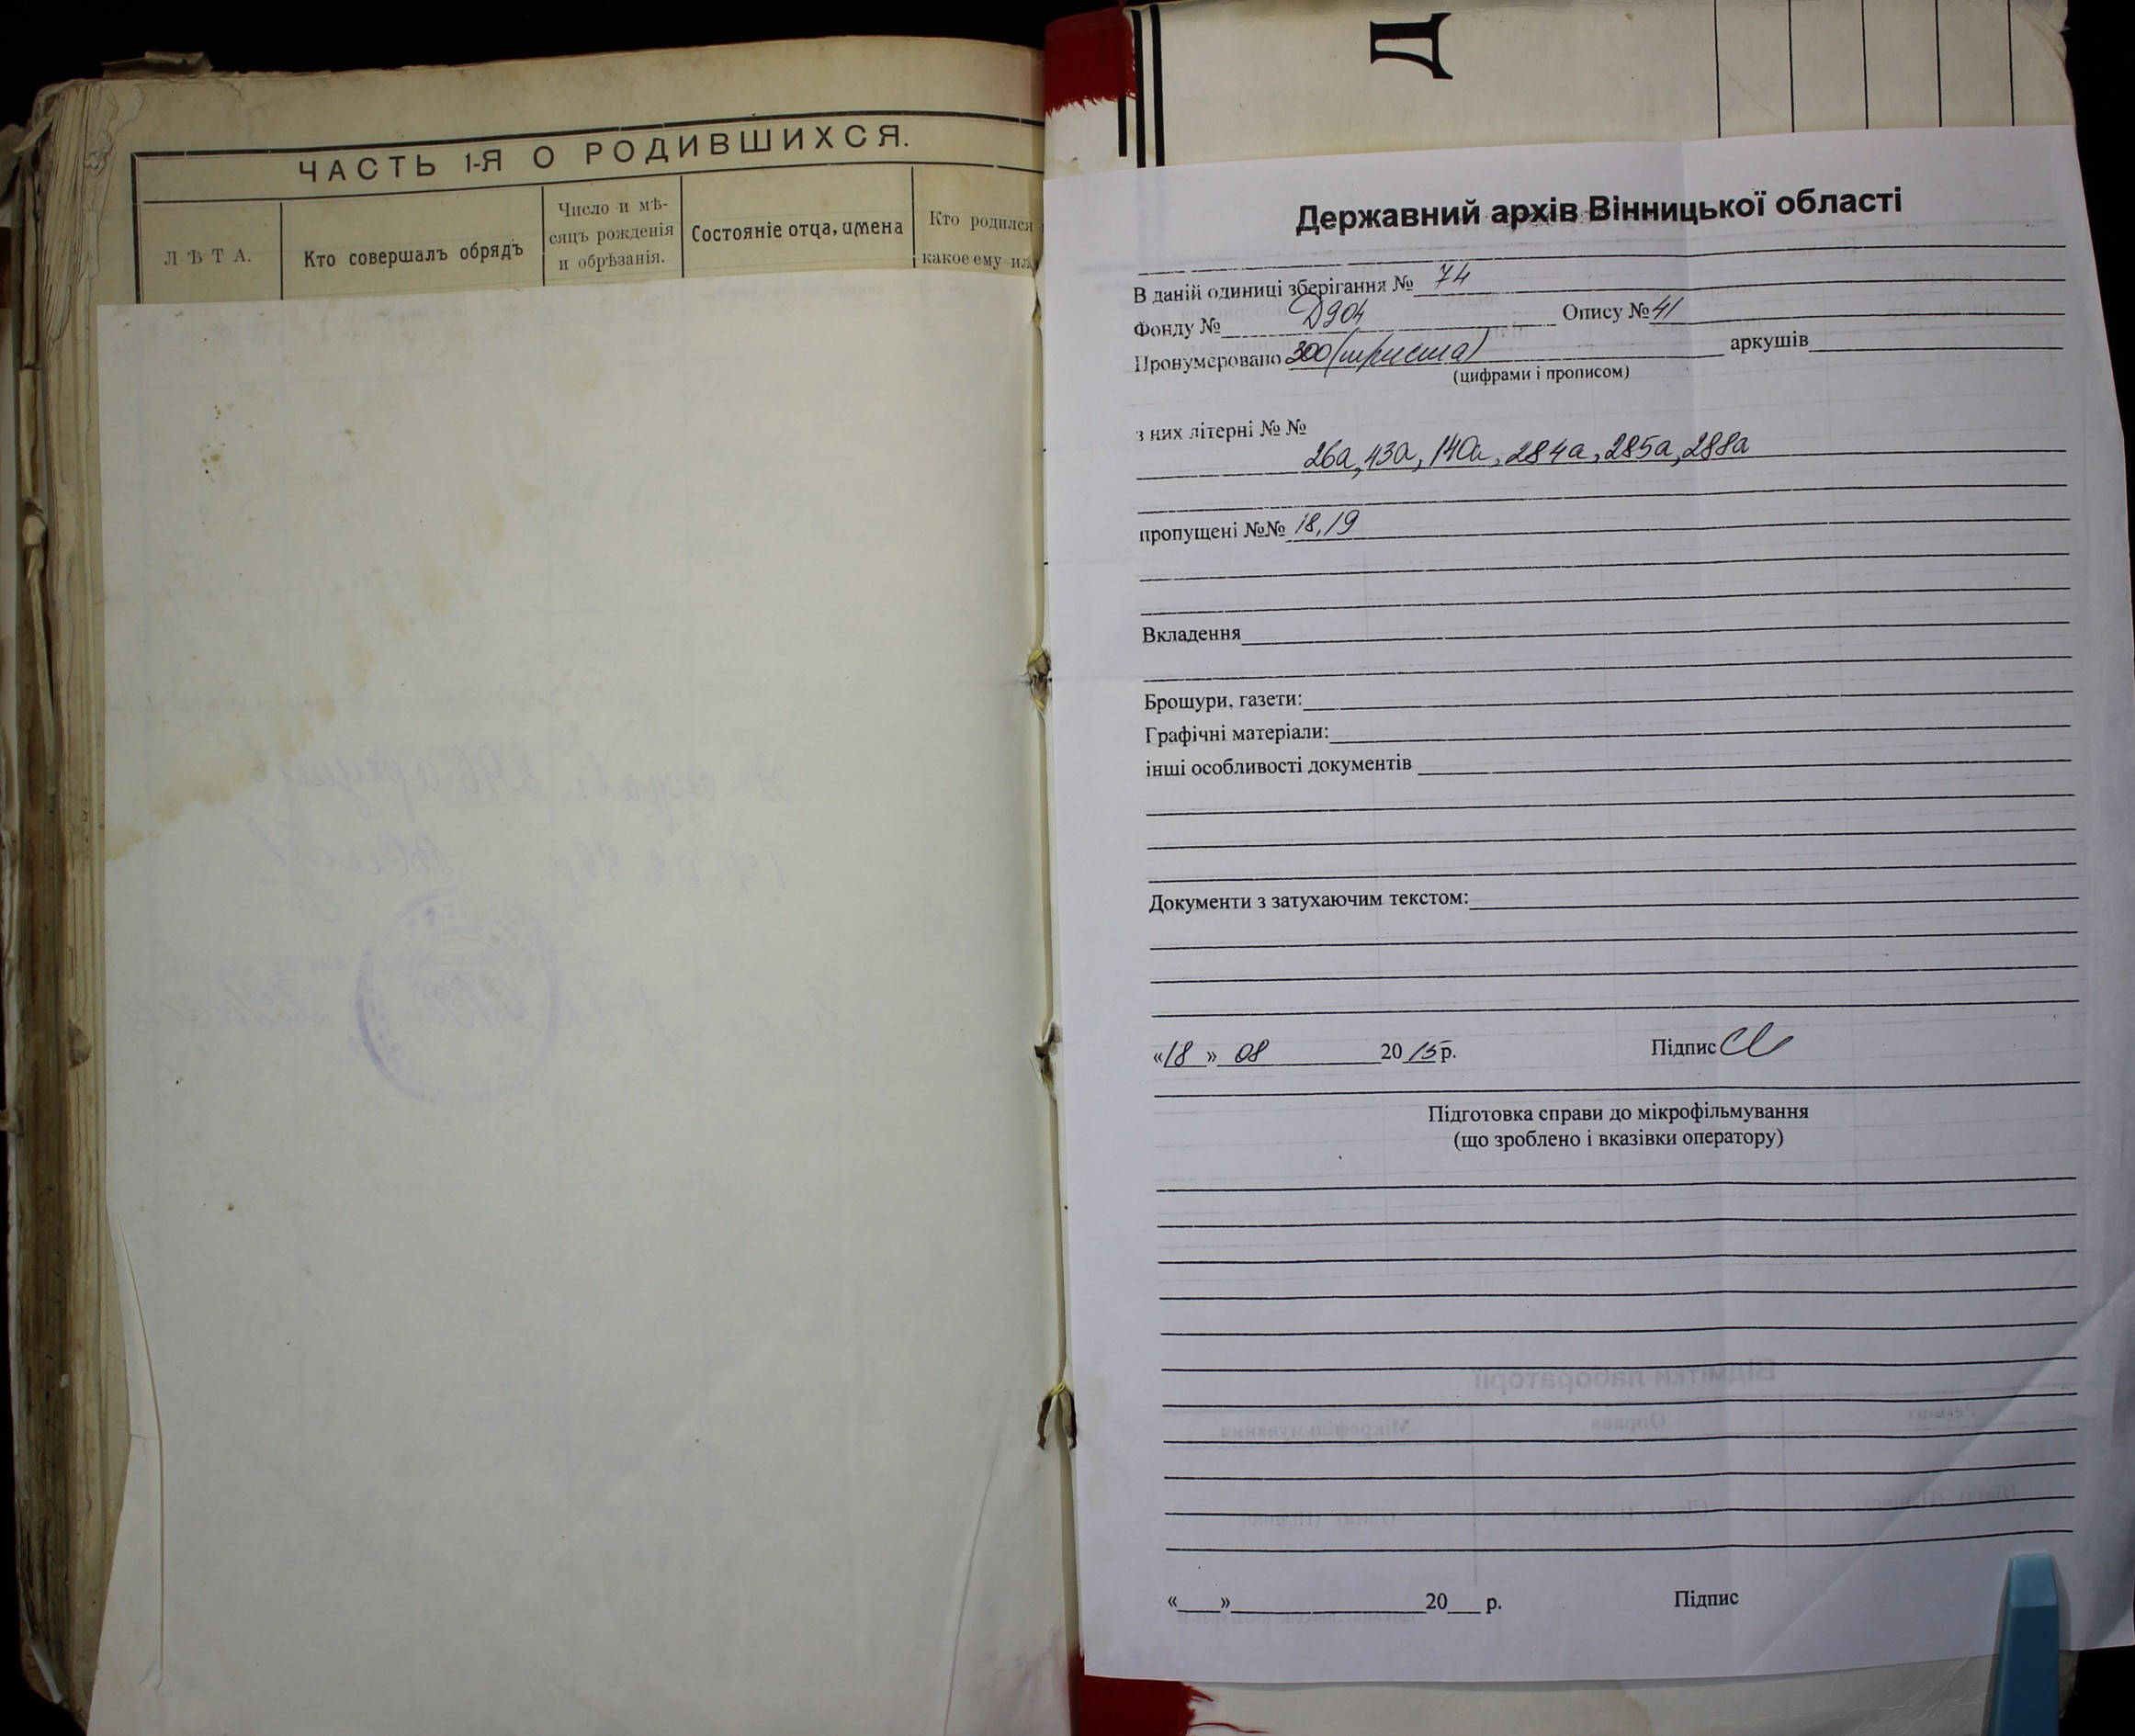 ЧАСТЬ 1-Я О РОДИВШИХСЯ.
ЛѢТА.
Кто совершалъ обрядъ
Число и мѣ-
сяцъ рожденія
и обрѣзанія.
Состояніе отца, имена
Кто родился
какое ему
Д
Державний архів Вінницької області
В даній одиниці зберігання № 74
Фонду № Д904 Опису № 41
Пронумеровано 300 (триста) аркушів
(цифрами і прописом)
з них літерні № №
26а, 43а, 140а, 284а, 285а, 288а
пропущені №№ 18, 19
Вкладення
Брошури, газети:
Графічні матеріали:
інші особливості документів
Документи з затухаючим текстом:
«18» 08 2015 р. Підпис
Підготовка справи до мікрофільмування
(що зроблено і вказівки оператору)
«___»___ 20___ р. Підпис